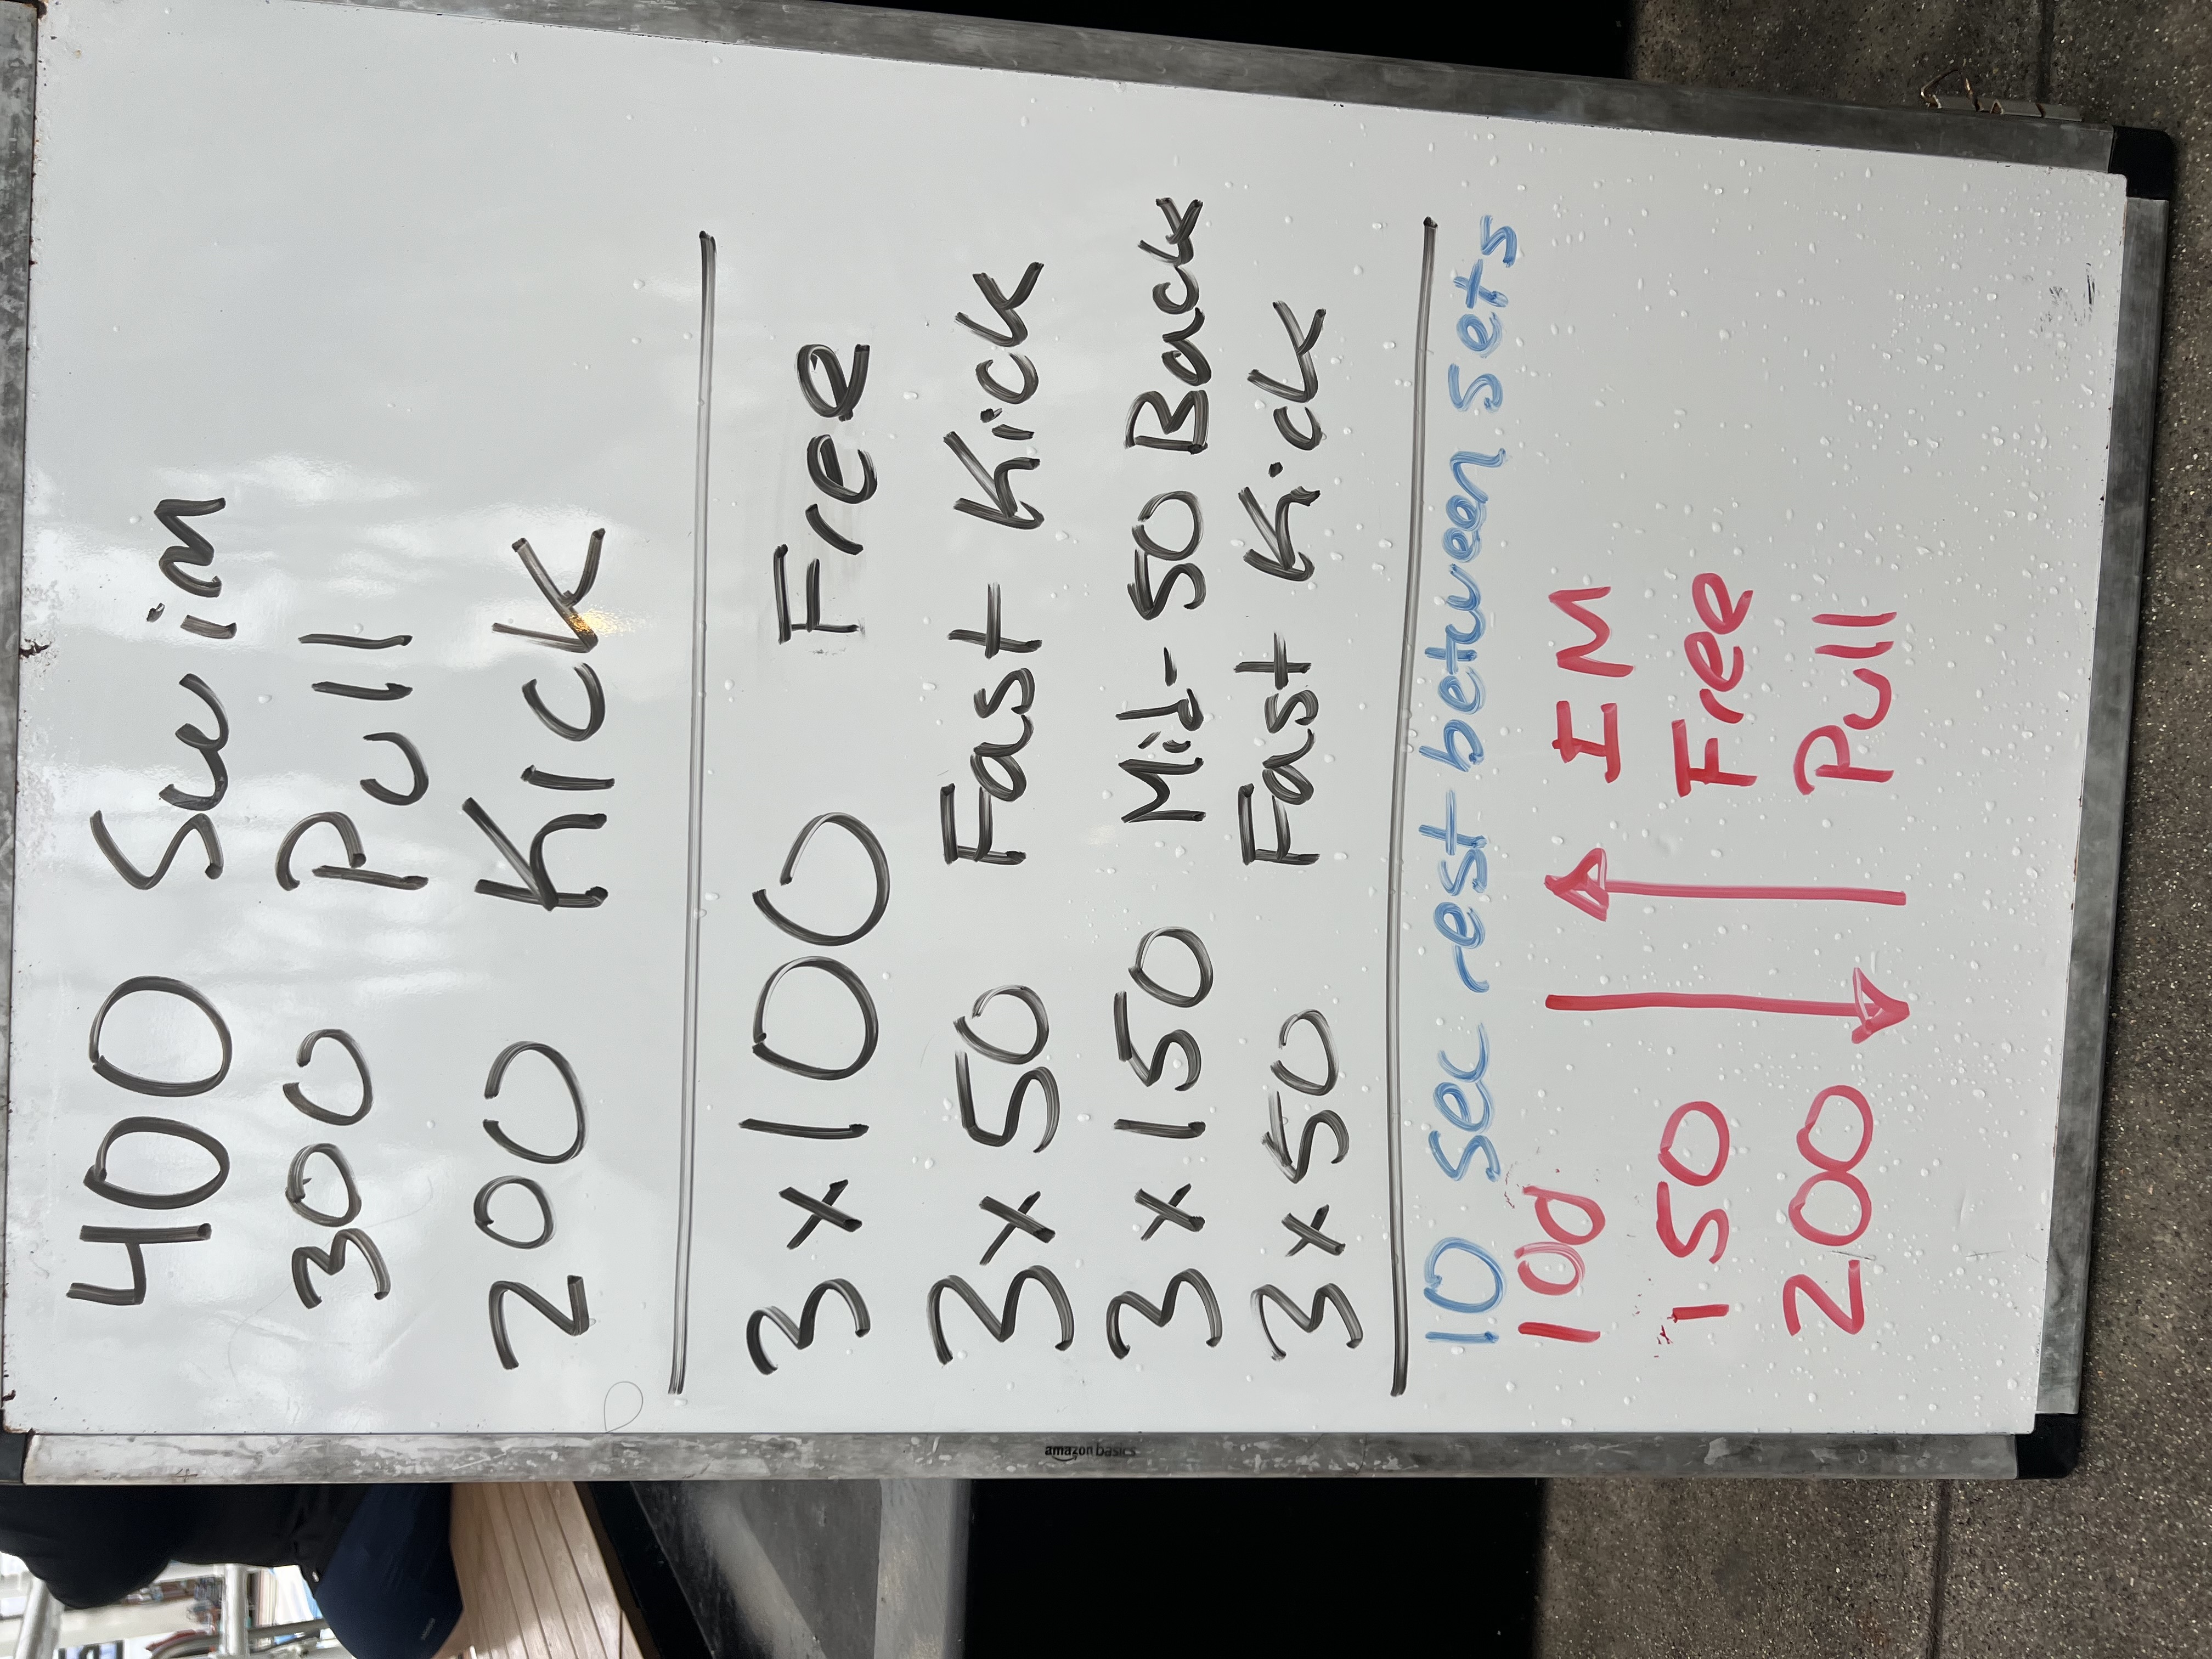 400 Swim
300 Pull
200 Kick
3x100 Free
3x50 Fast Kick
3x150 Mid-50 Back
3x50 Fast Kick
10 sec rest between sets
100 IM
150 Free
200 Pull
amazon basics